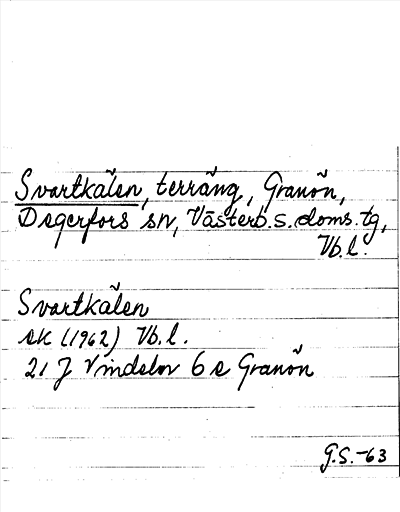 Svartkälen, terräng, Granön,
Degerfors sn, Västerb. s. doms. tg,
Vb. l.
Svartkälen
ek (1962) Vb. l.
21 J Vindeln 6 e Granön
G.S. -63